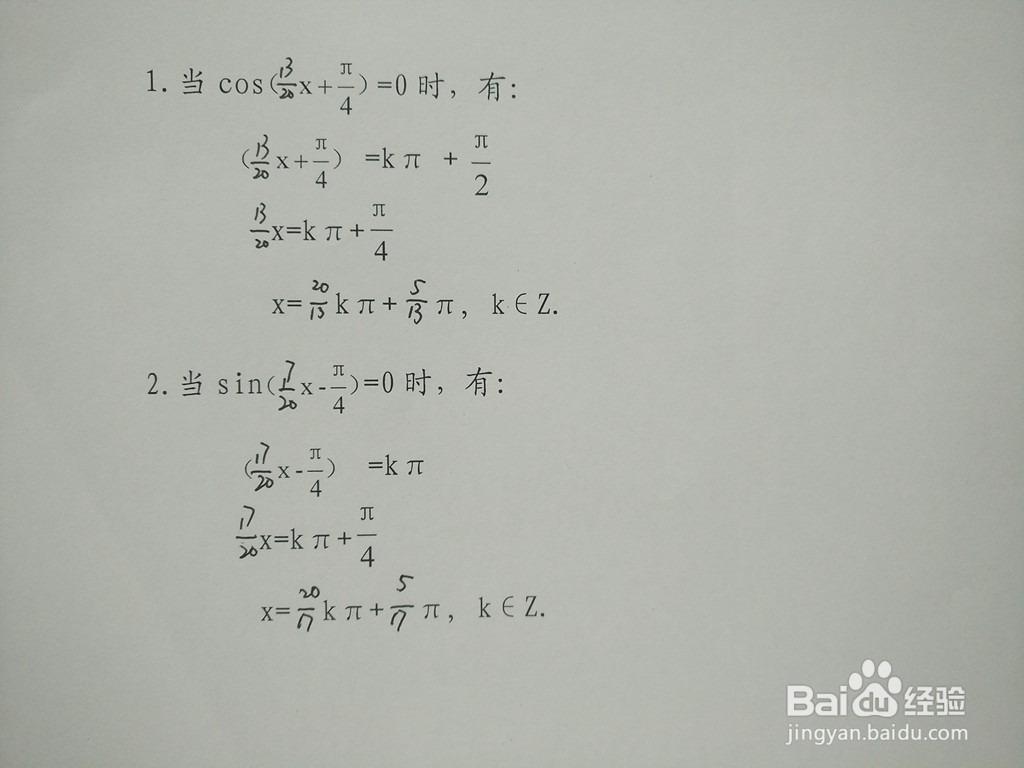 1. 当 cos(13/20 x+π/4)=0 时，有：
(13/20 x+π/4) =kπ + π/2
13/20 x=kπ+π/4
x=20/13 kπ+5/13 π, k∈Z.
2. 当 sin(17/20 x-π/4)=0 时，有：
(17/20 x-π/4) =kπ
17/20 x=kπ+π/4
x=20/17 kπ+5/17 π, k∈Z.
Bai du 经验
jingyan.baidu.com